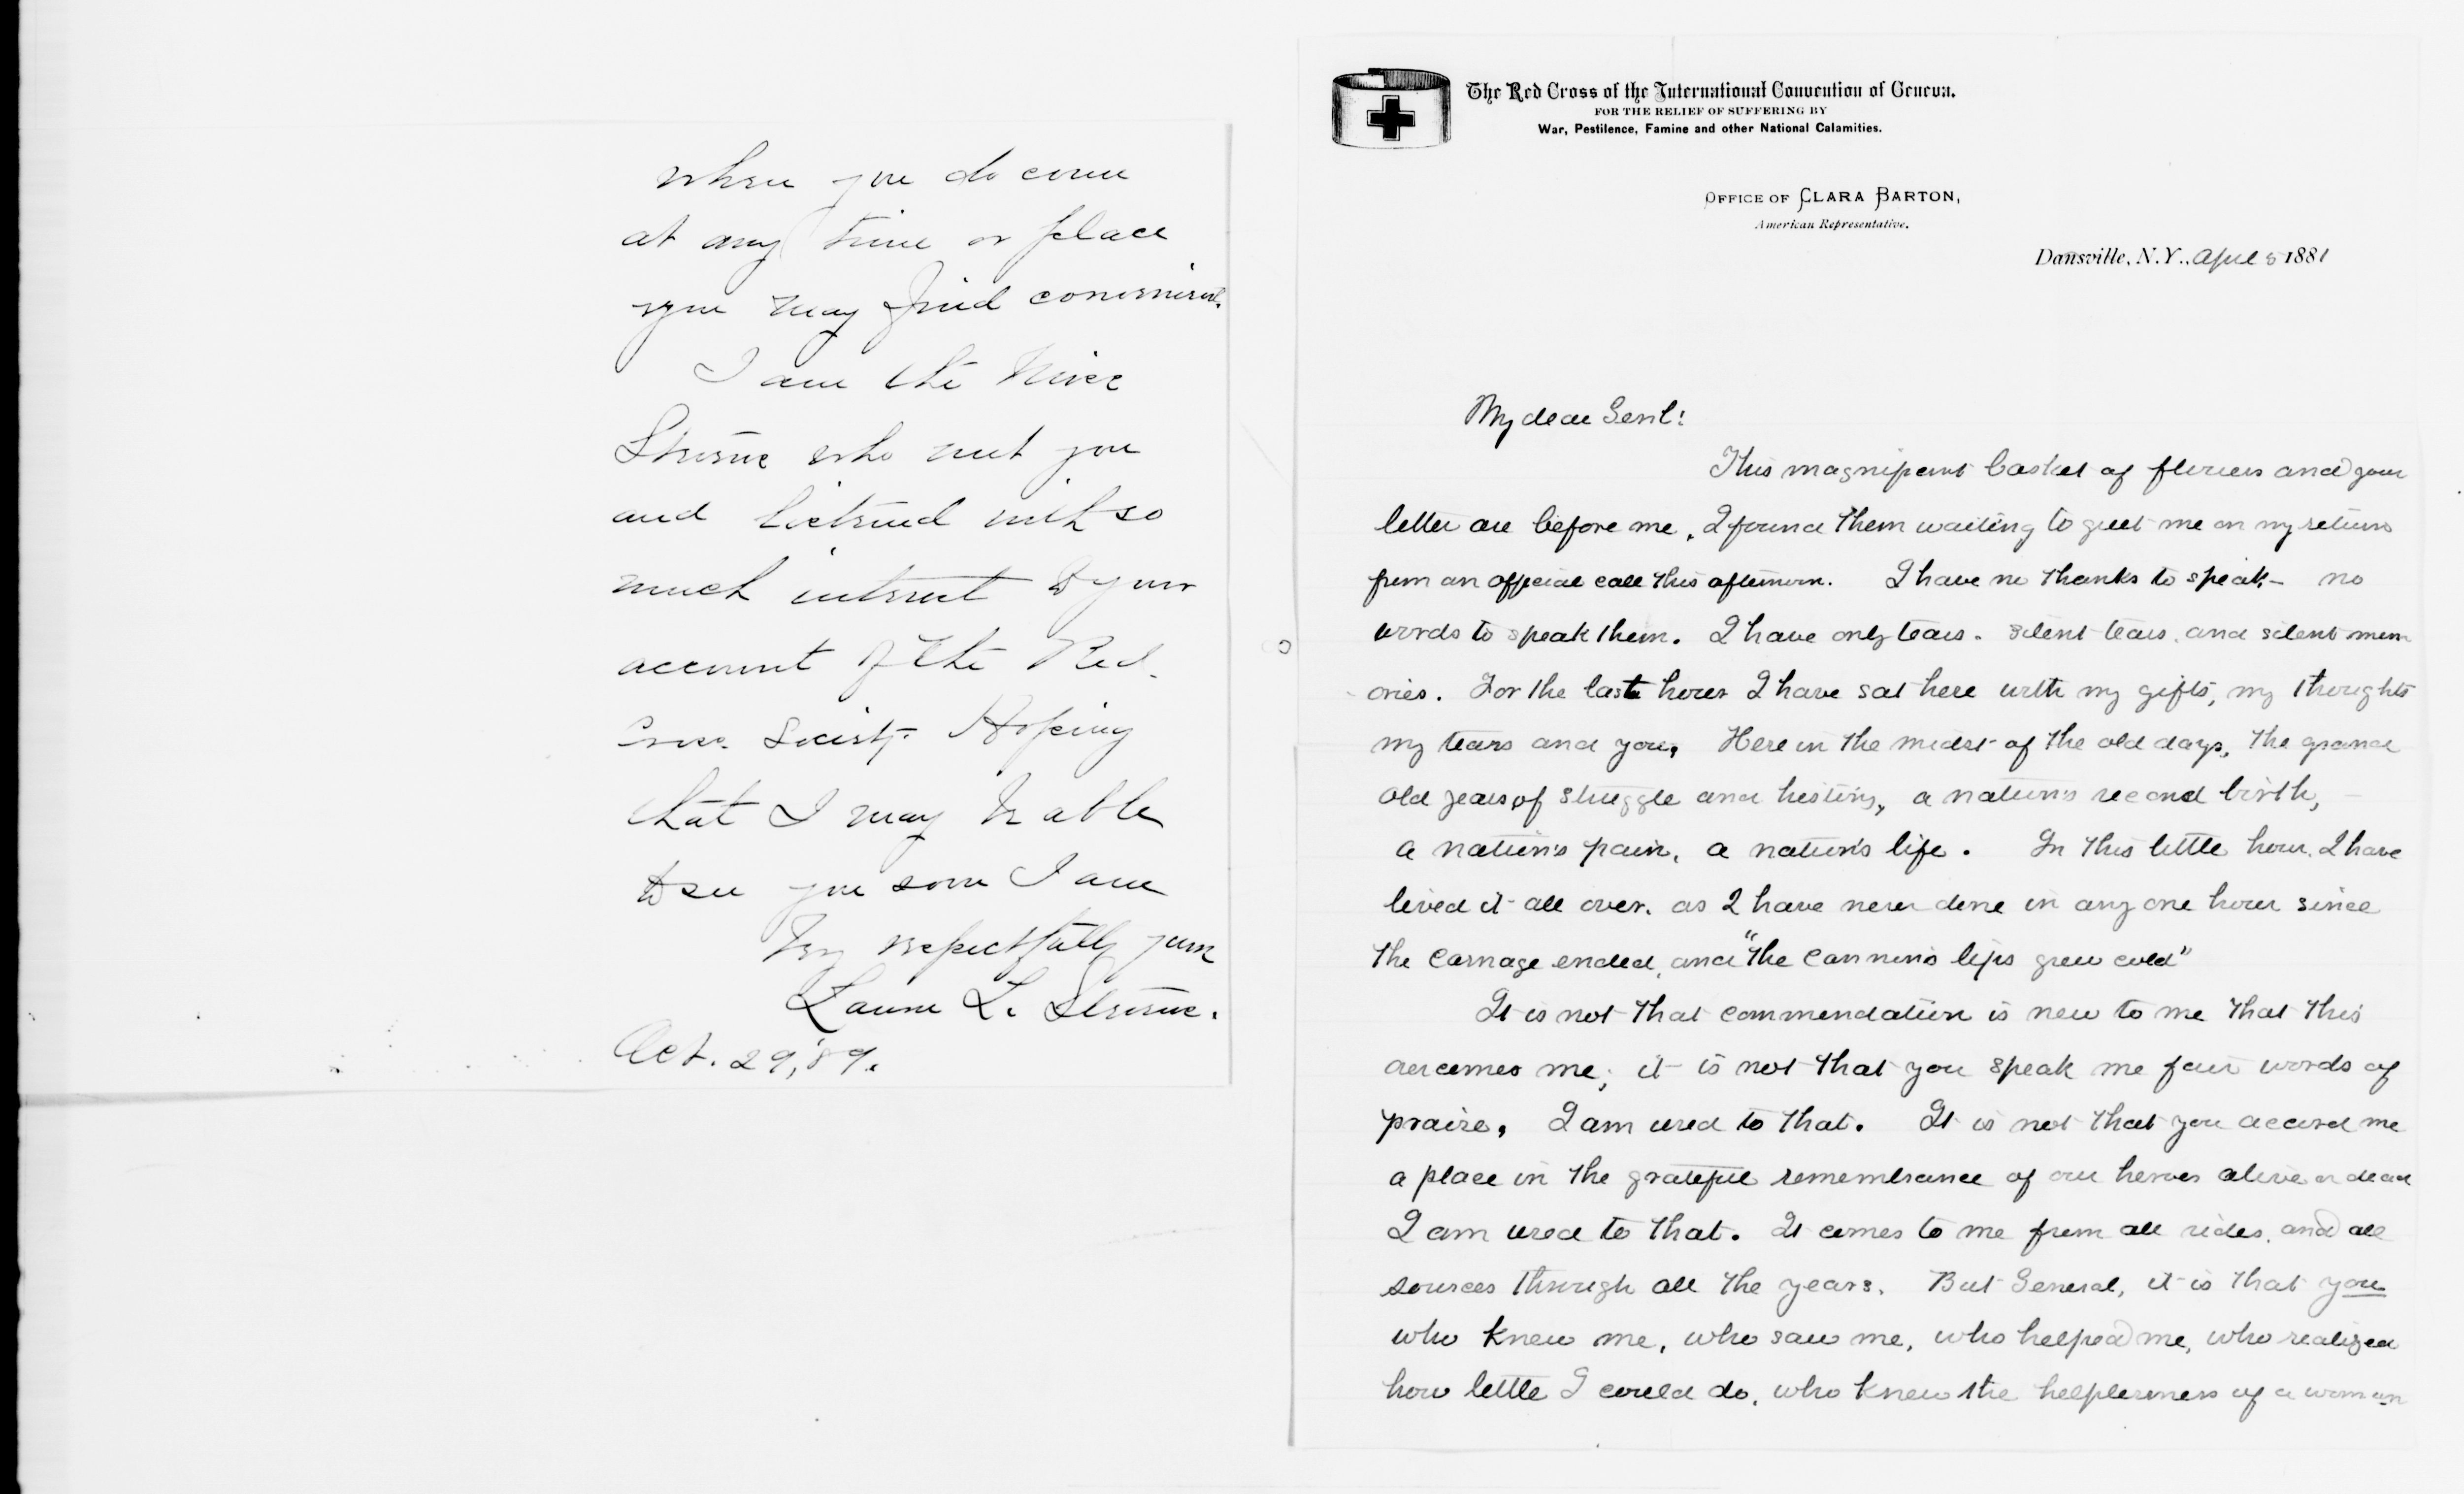 when you do come
at any time or place
you may find convenient.
I am the Miss
Strome who met you
and listened with so
much interest to your
account of the Red
Cross Society. Hoping
that I may be able
to see you soon I am
Very respectfully yours
Laura L. Strome.
Oct. 29, '89.
The Red Cross of the International Convention of Geneva.
FOR THE RELIEF OF SUFFERING BY
War, Pestilence, Famine and other National Calamities.
OFFICE OF CLARA BARTON,
American Representative.
Dansville, N.Y., April 5 1881
My dear Genl:
This magnificent basket of flowers and your
letter are before me, I found them waiting to greet me on my return
from an official call this afternoon. I have no thanks to speak – no
words to speak them. I have only tears. silent tears, and silent mem
ories. For the last hour I have sat here with my gifts, my thoughts
my tears and you, Here in the midst of the old days, the grand
old years of struggle and history, a nation's second birth, –
a nation's pain, a nation's life. In this little hour, I have
lived it all over, as I have never done in any one hour since
the carnage ended, and "the cannon's lips grew cold"
It is not that commendation is new to me that this
overcomes me; it is not that you speak me fair words of
praise, I am used to that. It is not that you accord me
a place in the grateful remembrance of our heroes alive or dead
I am used to that. It comes to me from all sides, and all
sources through all the years. But General, it is that you
who knew me, who saw me, who helped me, who realized
how little I could do, who knew the helplessness of a woman